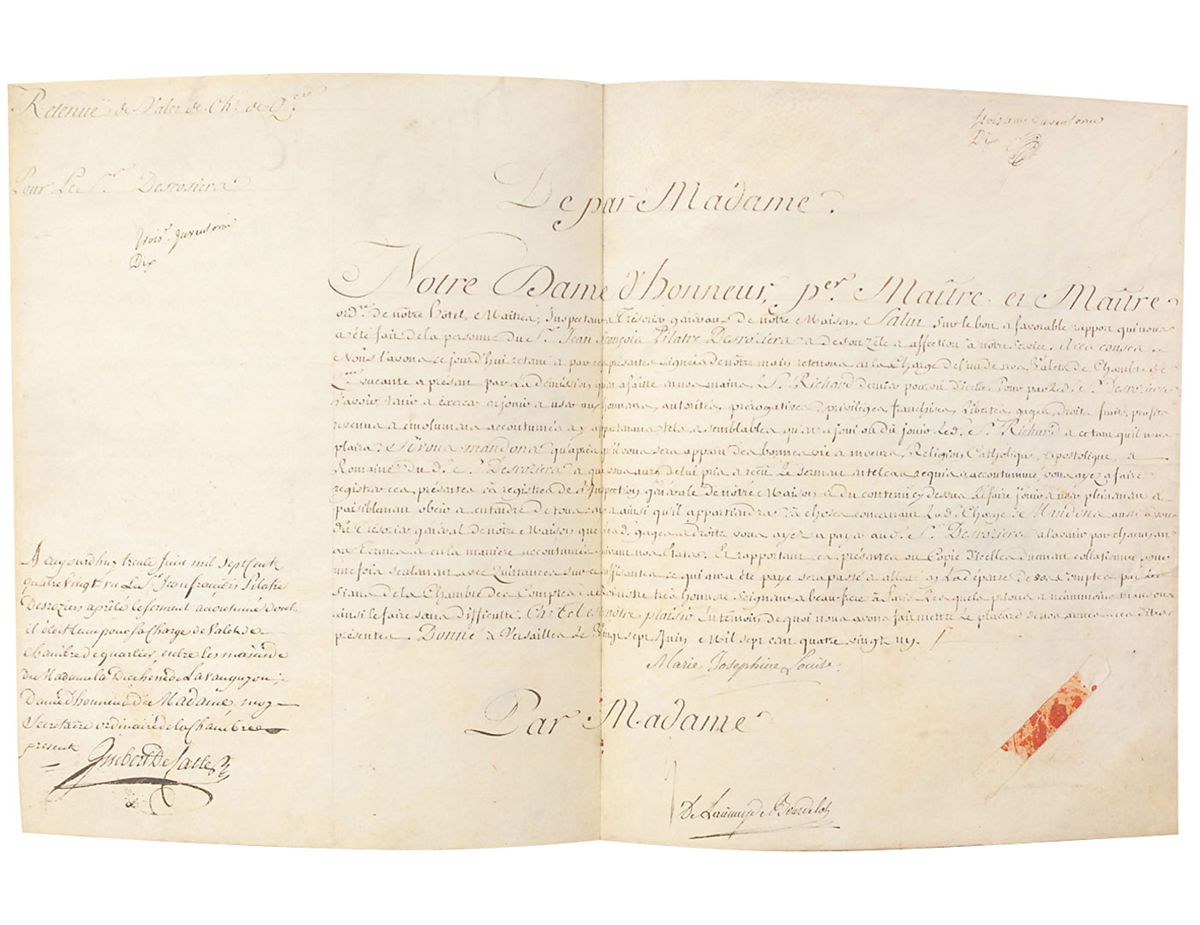 Retenuë de Valet de Ch.e de Q.er
Pour Le S.r Desrosiers
trois.e
Dix
trois.e
Dix
De par Madame.
Notre Dame d'honneur, p.er Maître et Maître
ord.re de nôtre hôtel, Maitres, Inspecteur Trésorier général de notre Maison, Salut Sur le bon & favorable rapport qui nous
a été fait de la personne du S.r Jean François Pilatre Desroziers & de son zéle & affection à nôtre service, A ces causes
Nous l'avons cejourd'hui retenu & par ces présentes signées de nôtre main retenons en la Charge de l'un de nos Valets de Chambre de
Q.er vacante à présent par La démission qu'en a faite en nos mains le S.r Richard dernier pourvû d'icelle. Pour par led. S.r Desroziers
l'avoir tenir & exercer en jouir & user aux honneurs, autorités, prérogatives, priviléges franchises, Libertés, gages, droits, fruits, profits
revenus & émolumens accoutumés & y appartenans tels & semblables qu'en a joui ou dû jouir Led. S.r Richard & ce tant qu'il nous
plaira. Si vous mandons qu'après qu'il vous sera apparu des bonnes vie & mœurs, Religion Catholique, Apostolique, &
Romaine du d. S.r Desroziers & que vous aurez de lui pris & reçu Le serment en tel cas requis & accoutumé, vous ayez à faire
registrer ces présentes és registres de l'Inspection générale de nôtre Maison & du contenu cy dessus Le faire jouir & user pleinement &
paisiblement obeir & entendre de tous ceux & ainsi qu'il appartiendra és choses concernant Lad. Charge. Mandons aussi à vous
dit Trésorier général de nôtre Maison que lesd. gages & droits vous ayez à payer aud. S.r Desroziers à l'avenir par chacun an
aux termes & en la manière accoutumée suivant nos Etats. Et rapportant ces présentes ou Copie d'icelles duement collationnée pour
une fois seulement avec Quittances sur ce suffisantes ce qui aura été payé sera passé & alloué en La dépense de vos Comptes par les
Gens de la Chambre des Comptes de nôtre très honoré Seigneur & beau frere à Paris Les quels prions & néanmoins mandons
ainsi le faire sans difficulté. Car tel est nôtre plaisir En témoin de quoi nous avons fait mettre le placard de nos armes à ces dites
présentes. Donné à Versailles Le Vingt sept Juin Mil sept cent quatre vingt un.
Marie Josephine Louise.
Par Madame
De Launay de Bourdelot
Aujourdhuy trente Juin mil Sept Cent
quatre vingt un Le S.r Jean françois Pilatre
Desroziers a prêté le serment accoutumé dont
il étoit tenu pour sa Charge de Valet de
Chambre de quartier, entre les mains de
de Madame la Duchesse de Lavauguyon,
Dame d'honneur de Madame, moy
Secretaire ordinaire de la Chambre
present
Imbert De Salle